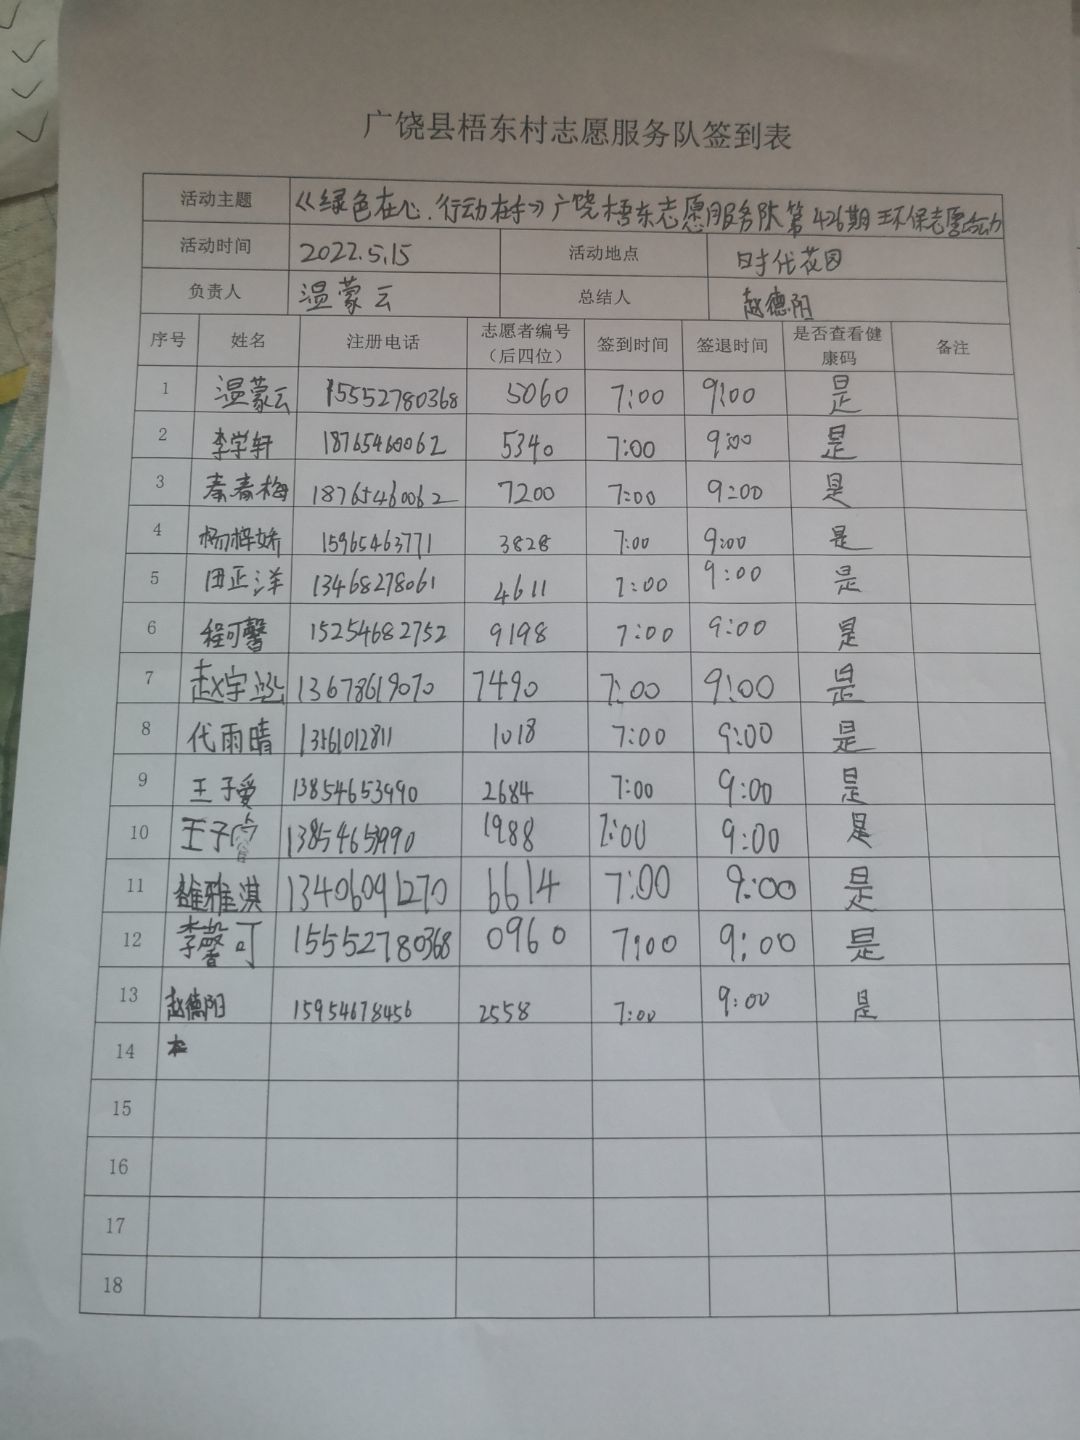 广饶县梧东村志愿服务队签到表
活动主题 《绿色在心.行动在手》广饶梧东志愿服务队第426期环保志愿活动
活动时间 2022.5.15 活动地点 时代花园
负责人 温蒙云 总结人 赵德阳
序号 姓名 注册电话 志愿者编号（后四位） 签到时间 签退时间 是否查看健康码 备注
1 温蒙云 15552780368 5060 7:00 9:00 是
2 李学轩 18765460062 5340 7:00 9:00 是
3 秦春梅 18765460062 7200 7:00 9:00 是
4 杨梓娇 15965463771 3828 7:00 9:00 是
5 田正洋 13468278061 4611 7:00 9:00 是
6 程可馨 15254682752 9198 7:00 9:00 是
7 赵宇涵 13678619070 7490 7:00 9:00 是
8 代雨晴 13561012811 1018 7:00 9:00 是
9 王子爱 13854653990 2684 7:00 9:00 是
10 王子睿 13854653990 1988 7:00 9:00 是
11 雅淇 13406091270 6614 7:00 9:00 是
12 李馨可 15552780368 0960 7:00 9:00 是
13 赵德阳 15954678456 2558 7:00 9:00 是
14
15
16
17
18